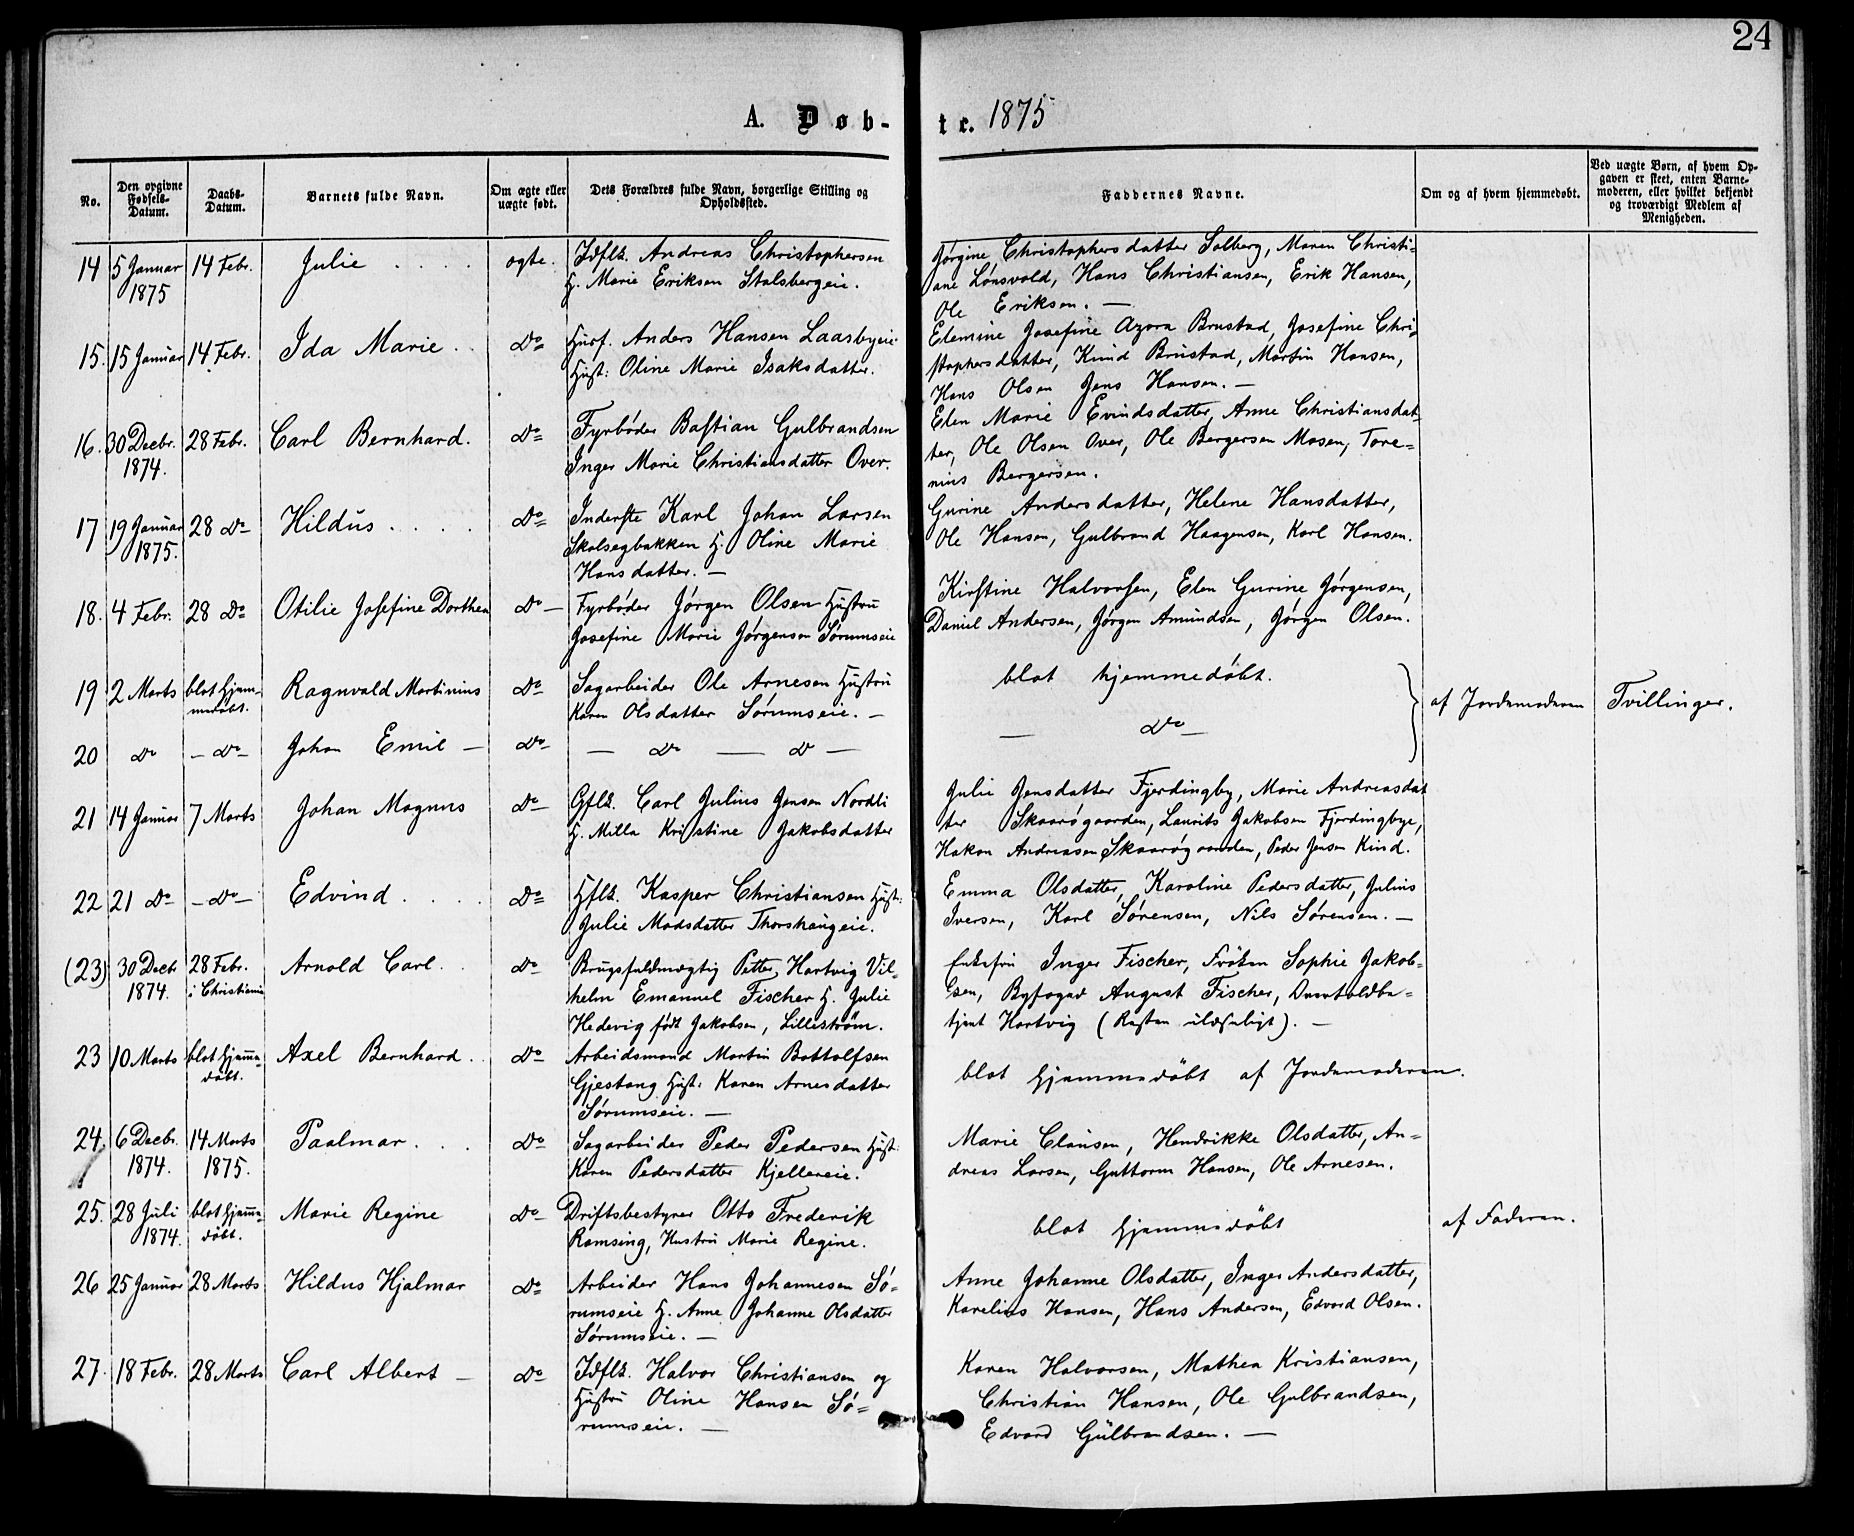 24
A. Døb-
te. 1875
No.
Den opgivne
Fødsels-
Datum.
Daabs-
Datum.
Barnets fulde Navn.
Om ægte eller
uægte født.
Dets Forældres fulde Navn, borgerlige Stilling og
Opholdssted.
Faddernes Navne.
Om og af hvem hjemmedøbt.
Ved uægte Børn, af hvem Op-
gaven er skeet, enten Barne-
moderen, eller hvilket bekjendt
og troværdigt Medlem af
Menigheden.
14 5 Januar 14 Febr. Julie . . . . ægte. Idflk. Andreas Christophersen
1875 H. Marie Eriksen Stalsbergeie.
Jørgine Christophersdatter Solberg, Maren Christi-
ane Lønsvold, Hans Christiansen, Erik Hansen,
Ole Eriksen. —
15. 15 Januar 14 Febr. Ida Marie . . Do Husf. Anders Hansen Laasbyeie
Hust: Oline Marie Isaksdatter.
Elemine Josefine Azora Brustad, Josefine Chri-
stophersdatter, Knud Brustad, Martin Hansen,
Hans Olsen Jens Hansen. —
16. 30 Decbr. 28 Febr. Carl Bernhard. Do Fyrbøder Bastian Gulbrandsen
1874. Inger Marie Christiansdatter Over.
Elen Marie Evindsdatter, Anne Christiansdat-
ter, Ole Olsen Over, Ole Bergersen Mosen, Tore-
nius Bergersen.
17 19 Januar 28 Do Hildus . . . . Do Inderste Karl Johan Larsen
1875. Skolsegbakken H. Oline Marie
Hansdatter. —
Gurine Andersdatter, Helene Hansdatter,
Ole Hansen, Gulbrand Haagensen, Karl Hansen.
18. 4 Febr. 28 Do Otilie Josefine Dorthea Do — Fyrbøder Jørgen Olsen Hustru
Josefine Marie Jørgensen Sørumseie
Kirstine Halvorsen, Elen Gurine Jørgensen,
Daniel Andersen, Jørgen Amundsen, Jørgen Olsen.
19 2 Marts blot hjem- Ragnvald Martinius Do Sagarbeider Ole Arnesen Hustru
medøbt. Karen Olsdatter Sørumseie. —
blot hjemmedøbt.
af Jordemoderen Tvillinger.
20 Do — Do — Johan Emil — Do — Do — D —
— Do —
21 14 Januar 7 Marts Johan Magnus Do — Gflk. Carl Julius Jensen Nordli
H. Milla Kristine Jakobsdatter
Julie Jensdatter Fjerdingby, Marie Andreasdat
ter Skaarøgaarden, Laurits Jakobsen Fjerdingbye,
Hakon Andreasen Skaarøgaarden, Peder Jensen Kind.
22 21 Do — Do — Edvind . . . . Do Hflk. Kasper Christiansen Hust:
Julie Madsdatter Thorshaugeie.
Emma Olsdatter, Karoline Pedersdatter, Julius
Iversen, Karl Sørensen, Nils Sørensen. —
(23) 30 Decbr 28 Febr. Arnold Carl . . Do Brugsfuldmægtig Petter Hartvig Vil-
1874. i Christiania helm Emanuel Fischer H. Julie
Hedevig født Jakobsen, Lilleström.
Enkefru Inger Fischer, Frøken Sophie Jakob-
sen, Byfoged August Fischer,
tjent Hartvig (Resten ulæseligt). —
23 10 Marts blot hjemme- Axel Bernhard . . Do Arbeidsmand Martin Bottolfsen
døbt. Gjestang Hust: Karen Arnesdatter
Sørumseie. —
blot hjemmedøbt af Jordemoderen.
24. 6 Decbr. 14 Marts Paalmar . . . Do Sagarbeider Peder Pedersen Hust:
1874. 1875. Karen Pedersdatter Kjellereie.
Marie Clausen, Hendrikke Olsdatter, An-
dreas Larsen, Guttorm Hansen, Ole Arnesen.
25. 28 Juli blot hjemme- Marie Regine Do — Driftsbestyrer Otto Frederik
1874. døbt. Ramsing, Hustru Marie Regine.
blot hjemmedøbt
af Faderen.
26 25 Januar 28 Marts Hildus Hjalmar Do Arbeider Hans Johannesen Sø-
rumseie H. Anne Johanne Olsdatter
Sørumseie. —
Anne Johanne Olsdatter, Inger Andersdatter,
Karelius Hansen, Hans Andersen, Edvard Olsen.
27. 18 Febr. 28 Marts Carl Albert — Do Idflk. Halvor Christiansen og
Hustru Oline Hansen Sø-
rumseie. —
Karen Halvorsen, Mathea Kristiansen,
Christian Hansen, Ole Gulbrandsen,
Edvard Gulbrandsen. —